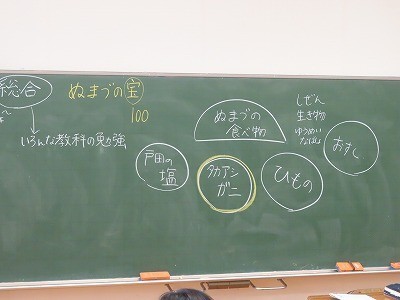 総合
ぬまづの宝
100
いろんな教科の勉強
ぬまづの
食べ物
しぜん
生き物
ゆうめい
戸田の
塩
タカアシ
ガニ
ひもの